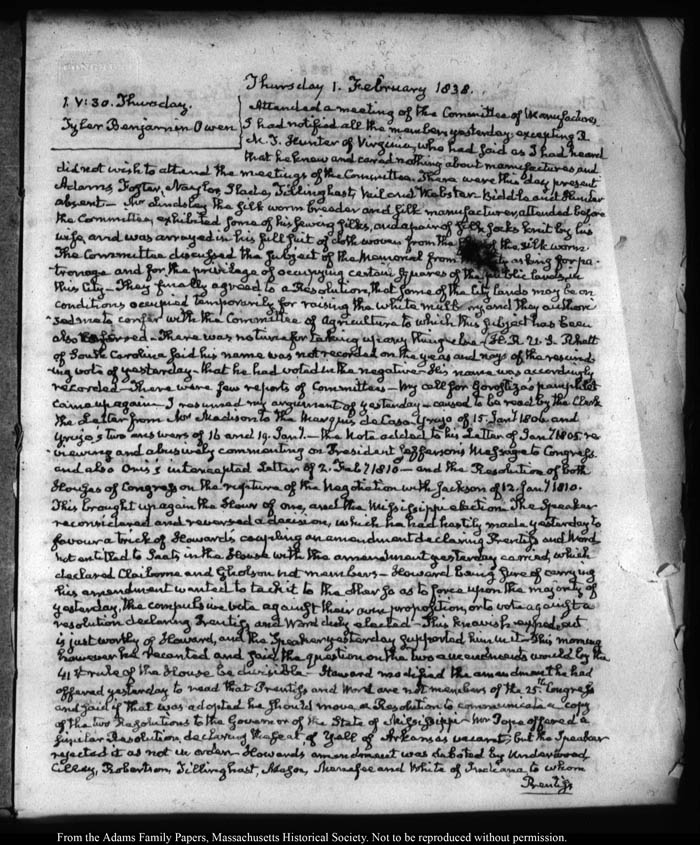 Thursday 1. February 1838.
1. V:30. Thursday.
Tyler Benjamin Owen
Attended a meeting of the Committee of Manufactures
I had notified all the members yesterday, excepting R
M. T. Hunter of Virginia, who had said as I had heard
that he knew and cared nothing about manufactures and
did not wish to attend the meetings of the Committee. There were this day present
Adams, Foster, Naylor, Slade, Tillinghast, Vail and Webster. Biddle and Hunter
absent— Mr Lindsley the silk worm breeder and silk manufacturer, attended before
the Committee, exhibited some of his sewing silks, and a pair of silk socks knit by his
wife, and was arrayed in his full suit of cloth woven from the of the silk worm
The Committee discussed the subject of the Memorial from asking for pa-
-tronage and for the privilege of occupying certain squares of the public lands, in
this City— They finally agreed to a Resolution, that some of the City lands may be on
conditions occupied temporarily for raising the white mulberry and they authori-
-sed me to confer with the Committee of Agriculture to which this subject has been
also referred— There was no time for taking up any thing else— H. R. U. S. Rhett
of South Carolina said his name was not recorded on the yeas and nays of the rescind-
-ing vote of yesterday— that he had voted in the negative— His name was accordingly
recorded— There were few reports of Committees— My call for Gorostiza's pamphlet
came up again— I resumed my argument of yesterday— caused to be read by the Clerk
the Letter from Mr Madison to the Marquis de Casa Yrujo of 15. Jany 1806. and
Yrujo's two answers of 16 and 19. Jany.— the Note added to his Letter of Jany 1805. re-
-viewing and abusively commenting on President Jefferson's Message to Congress.
and also Onis's intercepted Letter of 2. Feby 1810— and the Resolution of both
Houses of Congress on the rupture of the Negotiation with Jackson of 12. Jany 1810.
This brought up again the Hour of one, and the Mississippi election. The Speaker
reconsidered and reversed a decision, which he had hastily made yesterday to
favour a trick of Howard's coupling an amendment declaring Prentiss and Word
not entitled to Seats in the House with the amendment yesterday carried, which
declared Claiborne and Gholson not members— Howard being sure of carrying
his amendment wanted to tack it to the other so as to force upon the majority of
yesterday, the compulsive vote against their own proposition, or to vote against a
resolution declaring Prentiss and Word duly elected— This knavish expedient
is just worthy of Howard, and the Speaker yesterday supported him in it— This morning
however he recanted and said the question on the two amendments would by the
41st rule of the House be divisible— Howard modified the amendment he had
offered yesterday to read that Prentiss and Word are not members of the 25th Congress
and said if that was adopted he should move a Resolution to communicate a copy
of the two Resolutions to the Governor of the State of Mississippi— Mr Pope offered a
similar Resolution, declaring the seat of Yell of Arkansas vacant; but the Speaker
rejected it as not in order. Howard's amendment was debated by Underwood
Cilley, Robertson, Tillinghast, Mason, Menefee and White of Indiana, to whom
Prentiss
From the Adams Family Papers, Massachusetts Historical Society. Not to be reproduced without permission.